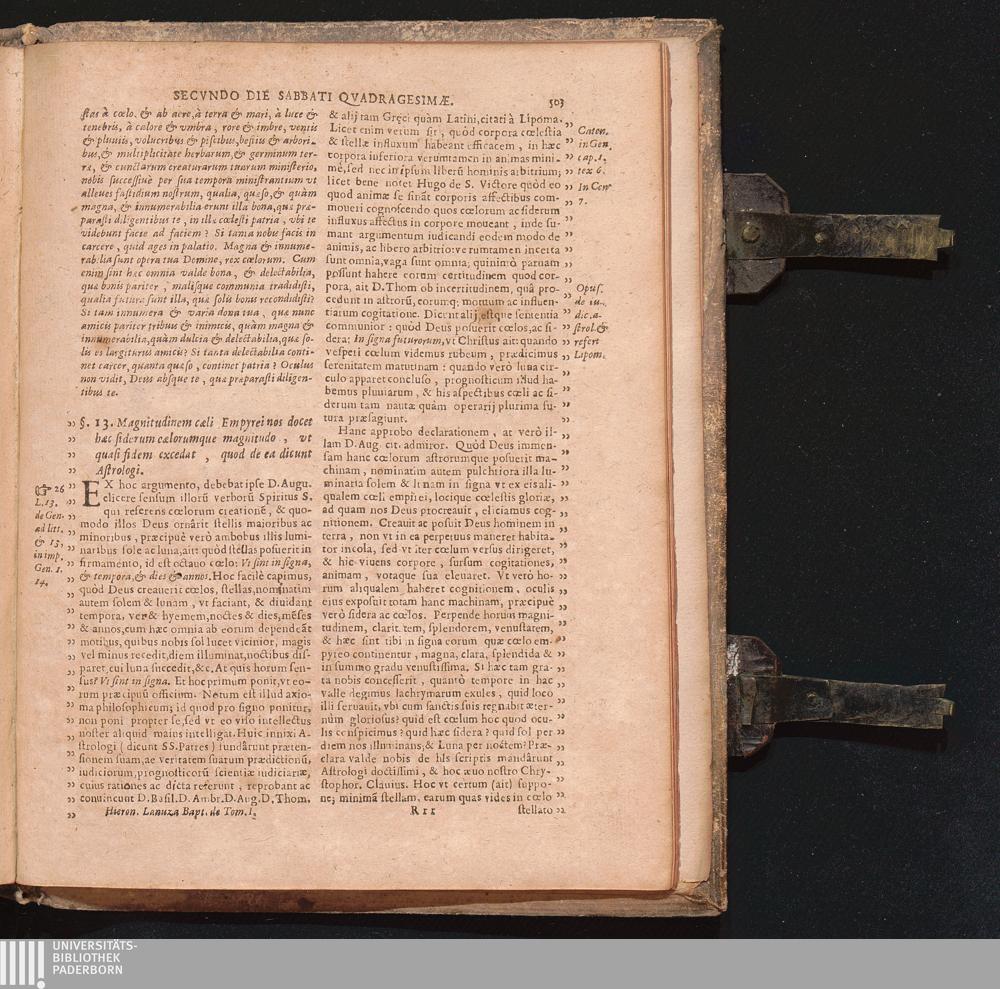 SECVNDO DIE SABBATI QVADRAGESIMÆ.
503
stas à cœlo. & ab aere, à terra & mari, à luce &
tenebris, à calore & vmbra, rore & imbre, ventis
& pluuiis, volucribus & piscibus, bestiis & arbori-
bus, & multiplicitate herbarum, & germinum ter-
ræ, & cunctarum creaturarum tuarum ministerio,
nobis successiuè per sua tempora ministrantium vt
alleues fastidium nostrum, qualia, quæso, & quàm
magna, & innumerabilia erunt illa bona, quæ præ-
parasti diligentibus te, in illa cœlesti patria, vbi te
videbunt facie ad faciem? Si tanta nobis facis in
carcere, quid ages in palatio. Magna & innume-
rabilia sunt opera tua Domine, rex cœlorum. Cum
enim sint hæc omnia valde bona, & delectabilia,
quæ bonis pariter, malisque communia tradidisti,
qualia futura sunt illa, quæ solis bonis recondidisti?
Si tam innumera & varia dona tua, quæ nunc
amicis pariter tribuis & inimicis, quàm magna &
innumerabilia, quàm dulcia & delectabilia, quæ so-
lis es largiturus amicis? Si tanta delectabilia conti-
net carcer, quanta quæso, continet patria? Oculus
non vidit, Deus absque te, quæ præparasti diligen-
tibus te.
§. 13. Magnitudinem cæli Empyrei nos docet
hæc siderum cælorumque magnitudo, vt
quasi fidem excedat, quod de ea dicunt
Astrologi.
☞ 26
L. 13.
de Gen.
ad litt.
& 13,
in imp.
Gen. 1.
14.
EX hoc argumento, debebat ipse D. Augu.
elicere sensum illorũ verborũ Spiritus S.
qui referens cœlorum creationẽ, & quo-
modo illos Deus ornârit stellis maioribus ac
minoribus, præcipuè vero ambobus illis lumi-
naribus sole ac luna, ait: quòd stellas posuerit in
firmamento, id est octauo cœlo: Vt sint in signa,
& tempora, & dies & annos. Hoc facilè capimus,
quòd Deus creauerit cœlos, stellas, nominatim
autem solem & lunam, vt faciant, & diuidant
tempora, ver & hyemem, noctes & dies, mẽses
& annos, cum hæc omnia ab eorum dependeãt
motibus, quibus nobis sol lucet vicinior, magis
vel minus recedit, diem illuminat, noctibus dis-
paret, cui luna succedit, &c. At quis horum sen-
sus? Vt sint in signa. Et hoc primum ponit, vt eo-
rum præcipuũ officium. Notum est illud axio-
ma philosophicum; id quod pro signo ponitur,
non poni propter se, sed vt eo viso intellectus
noster aliquid maius intelligat. Huic innixi A-
strologi (dicunt SS. Patres) fundârunt præten-
sionem suam, ac veritatem suarum prædictionũ,
iudiciorum, prognosticorũ scientiæ iudiciariæ,
cuius rationes ac dicta referunt, reprobant ac
conuincunt D. Basil. D. Ambr. D. Aug. D. Thom.
Hieron. Lanuza Bapt. de Tom. I.
& alij tam Gręci quàm Latini, citati à Lipoma.
Licet enim verum sit, quòd corpora cœlestia
& stellæ influxum habeant efficacem, in hæc
corpora inferiora verumtamen in animas mini-
mè, sed nec in ipsum liberũ hominis arbitrium;
licet bene notet Hugo de S. Victore quòd eo
quod animæ se sinãt corporis affectibus com-
moueri cognoscendo quos cœlorum ac siderum
influxus affectus in corpore moueant, inde su-
mant argumentum iudicandi eodem modo de
animis, ac libero arbitrio: verumtamen incerta
sunt omnia, vaga sunt omnia, quinimò paruam
possunt habere eorum certitudinem quod cor-
pora, ait D. Thom ob incertitudinem, quâ pro-
cedunt in astrorũ, eorumq; motuum ac influen-
tiarum cogitatione. Dicunt alij, estque sententia
communior: quòd Deus posuerit cœlos, ac si-
dera: In signa futurorum, vt Christus ait: quando
vesperi cœlum videmus rubeum, prædicimus
serenitatem matutinam: quando verò luna cir-
culo apparet concluso, prognosticum illud ha-
bemus pluuiarum, & his aspectibus cœli ac si-
derum tam nautæ quàm operarij plurima fu-
tura præsagiunt.
Hanc approbo declarationem, at verò il-
lam D. Aug. cit. admiror. Quòd Deus immen-
sam hanc cœlorum astrorumque posuerit ma-
chinam, nominatim autem pulchriora illa lu-
minaria solem & lunam in signa vt ex eis ali-
qualem cœli empirei, locique cœlestis gloriæ,
ad quam nos Deus procreauit, eliciamus cog-
nitionem. Creauit ac posuit Deus hominem in
terra, non vt in ea perpetuus maneret habita-
tor incola, sed vt iter cœlum versus dirigeret,
& hic viuens corpore, sursum cogitationes,
animam, votaque sua eleuaret. Vt verò ho-
rum aliqualem haberet cognitionem, oculis
eius exposuit totam hanc machinam, præcipuè
verò sidera ac cœlos. Perpende horum magni-
tudinem, claritatem, splendorem, venustatem,
& hæc sint tibi in signa eorum quæ cœlo em-
pyreo continentur, magna, clara, splendida &
in summo gradu venustissima. Si hæc tam gra-
ta nobis concesserit, quantò tempore in hac
valle degimus lachrymarum exules, quid loco
illi seruauit, vbi cum sanctis suis regnabit æter-
nùm gloriosus? quid est cœlum hoc quod ocu-
lis conspicimus? quid hæc sidera? quid sol per
diem nos illuminans, & Luna per noctem? Præ-
clara valde nobis de his scriptis mandârunt
Astrologi doctissimi, & hoc æuo nostro Chry-
stophor. Clauius. Hoc vt certum (ait) suppo-
ne; minimã stellam, earum quas vides in cœlo
Rrr
stellato
Caten.
in Gen.
cap. 1.
tex 6.
In Gen
7.
Opus.
de iu-
dic. a-
strol. &
refert
Lipom.
UNIVERSITÄTS-
BIBLIOTHEK
PADERBORN